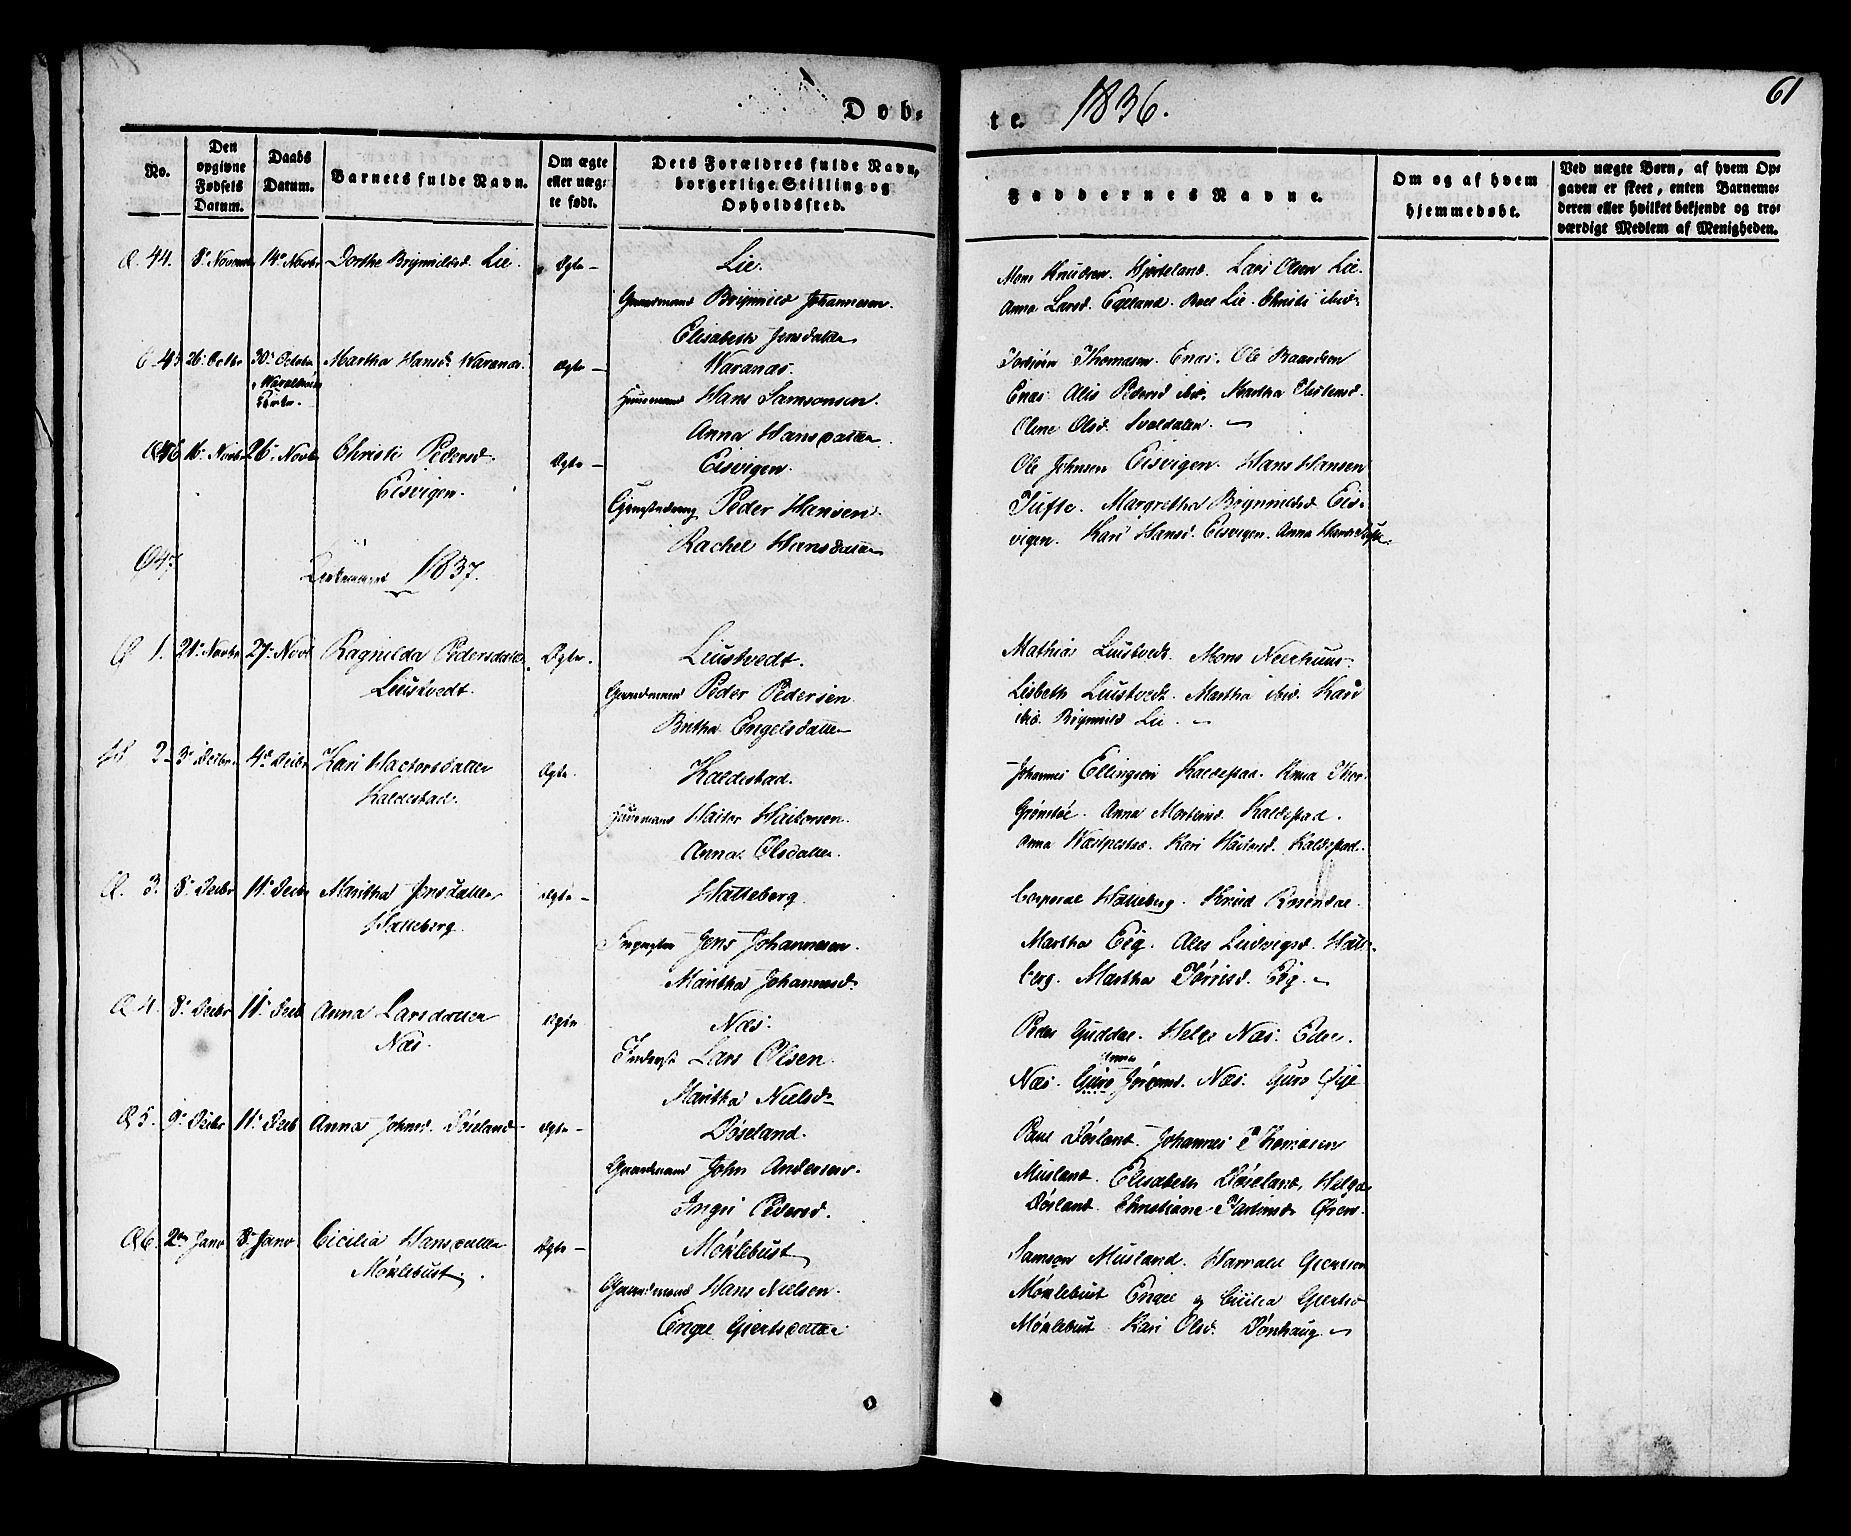 Døb-
te. 1836.
61
No.
Den opgivne Fødsels Datum.
Daabs Datum.
Barnets fulde Navn.
Om ægte eller uægte født.
Dets Forældres fulde Navn, borgerlige Stilling og Opholdssted.
Faddernes Navne.
Om og af hvem hjemmedøbt.
Ved uægte Børn, af hvem Opgaven er skeet, enten Barnemoderen eller hvilket bekjendt og troværdigt Medlem af Menigheden.
44. 8de Novemb 14de Novbr Dorthe Brynnildsd. Lie. Ægte - Lie.
Gaardmand Brynnild Johannesen.
Elisabeth Jensdatter
Mons Knudsen Lars Olsen Lie.
Anna Larsd. Eqeland. Lie. Christi ibid.
45 26. Octbr 30. October Martha Hansd. Waranæs. Ægte - Waranæs.
Huusmand Hans Samsonsen.
Anna Hansdatter.
Torbjørn Thomasen. Enæs. Ole Baardsen
Enæs Alis Pedersd ibid. Martha
Oline Olsd. Svaldalen.
46 16. Novbr 26. Novb Christi Pedersd. Ægte - Eisvigen.
Eisvigen.
Peder Hansen.
Rachel Hansdatter
Ole Johnsen Eisvigen. Hans Hansen
Tufte. Margretha Brynnildsd Eis-
vigen. Kari Hansd. Eisvigen. Anna
47
1837.
1. 21. Novbr 27. Novb Ragnilda Pedersdatter Ægte. Liustvedt.
Liustvedt.
Gaardmand Peder Pedersen
Britha Engelsdatter
Mathias Liustvedt. Mons Neerhuus.
Lisbeth Liustvedt. Martha ibid. Kari
ibid. Brynnild Lie.
2. 3. Decbr 4. Decbr Kari Hactorsdatter Ægte. Kaldestad.
Kaldestad.
Huusmand Hactor Hactorsen.
Anna Olsdatter.
Johannes Ellingsen Kaldestad. Knud Thor-
Grønstøe. Anna Mortensd. Kaldestad.
Anna Kari Hactorsd. Kaldestad.
3. 8. Decbr 11. Decbr Maritha Jensdatter Ægte - Hatteberg
Hatteberg.
Jens Johannesen.
Maritha Johannesd.
Corporal Hatteberg. Knud Rosendal.
Martha Eeg. Ales Ludvigsd. Hatte-
berg. Martha Tørrisd. Eeg.
4. 8. Decbr 11. Decb Anna Larsdatter Ægte Næs.
Næs.
Inderst Lars Olsen.
Maritha Nielsd.
Peder Guddal. Helge Næs.
Næs. Næs. Guro Øije
5. 9. Decbr 11. Decb Anna Johnsd. Døseland Ægte - Døseland.
Gaardmand John Andersen.
Ingri Pedersd.
Paul Døsland. Johannes Thomasen
Musland. Elisabeth Døseland, Helga
Døsland. Christiane
6. 2den Janv 8. Janv. Cicilia Hansdatter Ægte - Møklebust
Møklebust.
Gaardmand Hans Nielsen.
Engel Giertsdatter
Samson Musland. Harrald Giertsen
Møklebust Engel og Cicilia Giertsd
Møklebust Kari Olsd. Dønhaug.